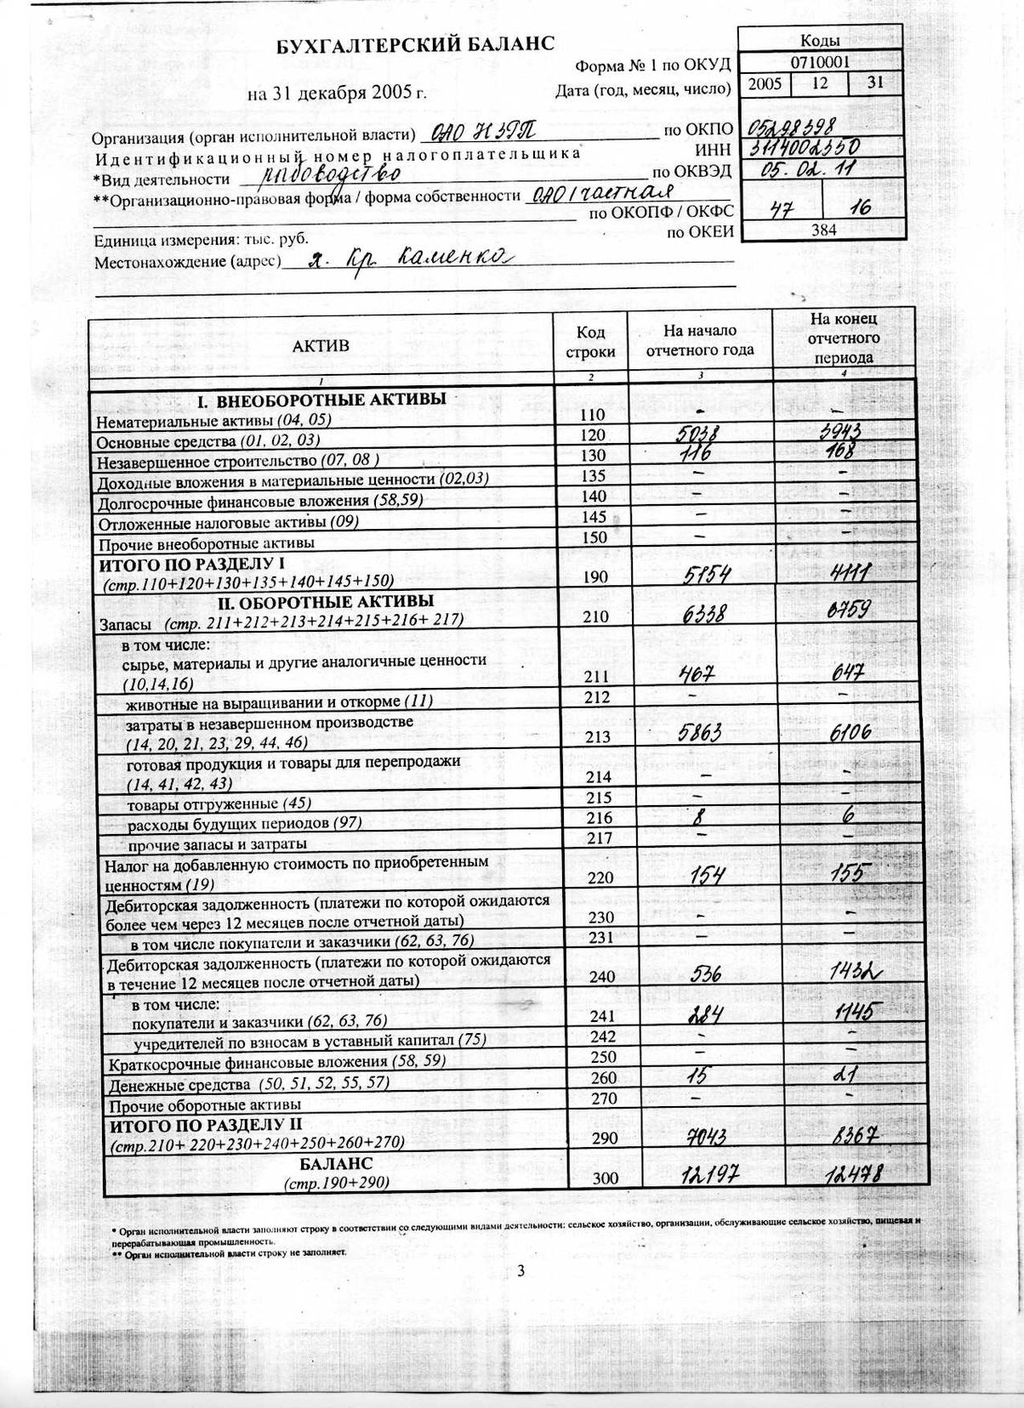 БУХГАЛТЕРСКИЙ БАЛАНС
Коды
Форма № 1 по ОКУД 0710001
на 31 декабря 2005 г. Дата (год, месяц, число) 2005 12 31
Организация (орган исполнительной власти) ОАО НЗРП по ОКПО 05298398
Идентификационный номер налогоплательщика ИНН 3114002350
*Вид деятельности рыбоводство по ОКВЭД 05.02.11
**Организационно-правовая форма / форма собственности ОАО / частная
по ОКОПФ / ОКФС 47 16
Единица измерения: тыс. руб. по ОКЕИ 384
Местонахождение (адрес) х. Кр Каменка
АКТИВ Код строки На начало отчетного года На конец отчетного периода
1 2 3 4
I. ВНЕОБОРОТНЫЕ АКТИВЫ
Нематериальные активы (04, 05) 110 - -
Основные средства (01, 02, 03) 120 5038 3943
Незавершенное строительство (07, 08 ) 130 116 168
Доходные вложения в материальные ценности (02,03) 135 - -
Долгосрочные финансовые вложения (58,59) 140 - -
Отложенные налоговые активы (09) 145 - -
Прочие внеоборотные активы 150 - -
ИТОГО ПО РАЗДЕЛУ I
(стр.110+120+130+135+140+145+150) 190 5154 4111
II. ОБОРОТНЫЕ АКТИВЫ
Запасы (стр. 211+212+213+214+215+216+ 217) 210 6338 6759
в том числе:
сырье, материалы и другие аналогичные ценности
(10,14,16) 211 467 647
животные на выращивании и откорме (11) 212 - -
затраты в незавершенном производстве
(14, 20, 21, 23, 29, 44, 46) 213 5863 6106
готовая продукция и товары для перепродажи
(14, 41, 42, 43) 214 - -
товары отгруженные (45) 215 - -
расходы будущих периодов (97) 216 8 6
прочие запасы и затраты 217 - -
Налог на добавленную стоимость по приобретенным
ценностям (19) 220 154 155
Дебиторская задолженность (платежи по которой ожидаются
более чем через 12 месяцев после отчетной даты) 230 - -
в том числе покупатели и заказчики (62, 63, 76) 231 - -
Дебиторская задолженность (платежи по которой ожидаются
в течение 12 месяцев после отчетной даты) 240 536 1432
в том числе:
покупатели и заказчики (62, 63, 76) 241 284 1145
учредителей по взносам в уставный капитал (75) 242 - -
Краткосрочные финансовые вложения (58, 59) 250 - -
Денежные средства (50, 51, 52, 55, 57) 260 15 21
Прочие оборотные активы 270 - -
ИТОГО ПО РАЗДЕЛУ II
(стр.210+ 220+230+240+250+260+270) 290 7043 8367
БАЛАНС
(стр.190+290) 300 12197 12478
* Орган исполнительной власти заполняют строку в соответствии со следующими видами деятельности: сельское хозяйство, организации, обслуживающие сельское хозяйство, пищевая и
перерабатывающая промышленность.
** Орган исполнительной власти строку не заполняет.
3